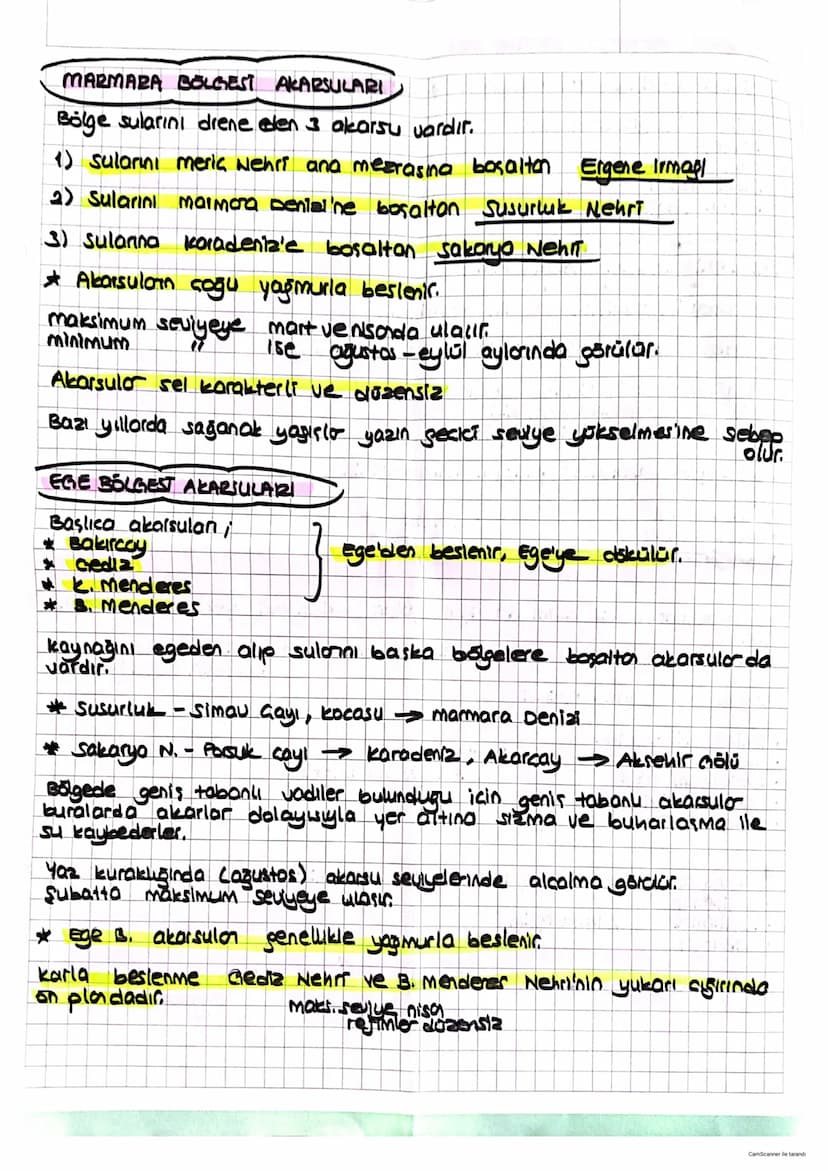 MARMARA BÖLGESİ AKARSULARI
Bölge sularını drene eden 3 akarsu vardır.
1) Sularını meriç Nehri ana mecrasına boşaltan Ergene Irmağı
2) Sularını marmara Denizi'ne boşaltan Susurluk Nehri
3) Sularına karadeniz'e boşaltan Sakarya Nehri
* Akarsuların çoğu yağmurla beslenir.
maksimum seviyeye mart ve nisanda ulaşır.
minimum " ise ağustos-eylül aylarında görülür.
Akarsular sel karakterli ve düzensiz
Bazı yıllarda sağanak yağışlar yazın geçici seviye yükselmesine sebep
olur.
EGE BÖLGESİ AKARSULARI
Başlıca akarsuları;
* Bakırçay
* Gediz
* K. Menderes
* B. Menderes
Ege'den beslenir, Ege'ye dökülür.
kaynağını egeden alıp sularını başka bölgelere boşaltan akarsular da
vardır.
* Susurluk - Simav Çayı, kocasu → marmara Denizi
* Sakarya N. - Porsuk çayı → Karadeniz, Akarçay → Akşehir Gölü
Bölgede geniş tabanlı vadiler bulunduğu için geniş tabanlı akarsular
buralarda akarlar dolayısıyla yer altına sızma ve buharlaşma ile
su kaybederler.
Yaz kuraklığında (ağustos) akarsu seviyelerinde alçalma görülür.
Şubatta maksimum seviyeye ulaşır.
* Ege B. akarsuları genellikle yağmurla beslenir.
Karla beslenme Gediz Nehri ve B. Menderes Nehri'nin yukarı çığırında
ön plandadır.
maks. seviye nisan
rejimler düzensiz
CamScanner ile tarandı